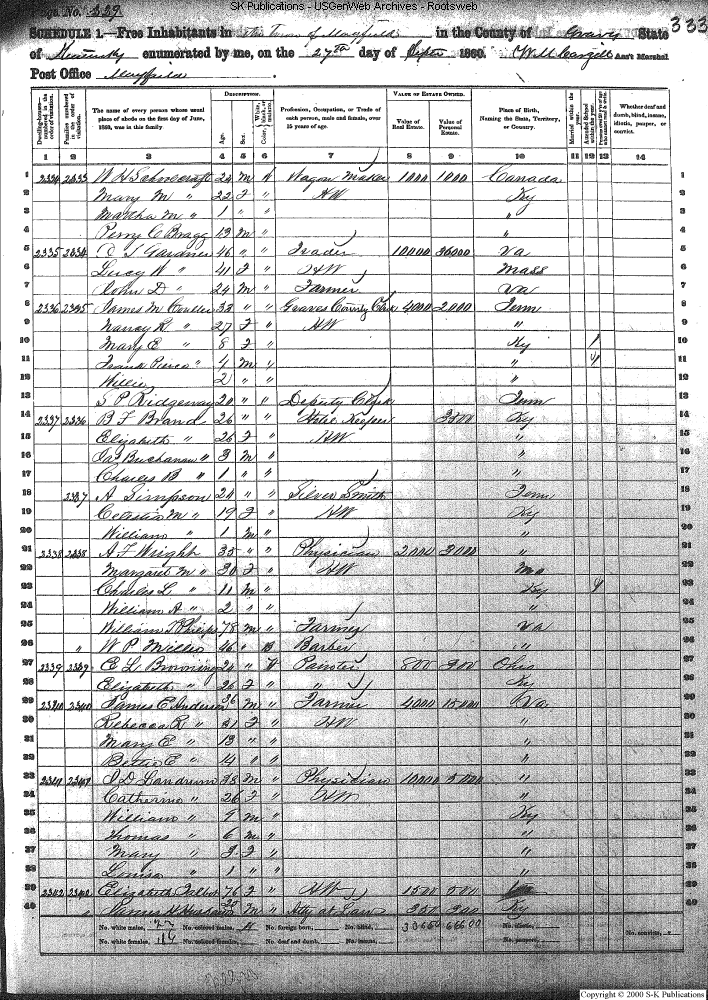 SK Publications - USGenWeb Archives - Rootsweb
Page No. 339
333
SCHEDULE 1.—Free Inhabitants in the Town of Mayfield in the County of Graves State
of Kentucky enumerated by me, on the 27th day of Sept 1860. Ass't Marshal
Post Office Mayfield
Dwelling-houses—numbered in the order of visitation.
Families numbered in the order of visitation.
The name of every person whose usual place of abode on the first day of June, 1860, was in this family.
DESCRIPTION.
Age.
Sex.
Color, White, black, or mulatto.
Profession, Occupation, or Trade of each person, male and female, over 15 years of age.
VALUE OF ESTATE OWNED.
Value of Real Estate.
Value of Personal Estate.
Place of Birth, Naming the State, Territory, or Country.
Married within the year.
Attended School within the year.
Whether deaf and dumb, blind, insane, idiotic, pauper, or convict.
1 2 3 4 5 6 7 8 9 10 11 12 13 14
1 2334 2333 W H Schoolcraft 24 M W Wagon Maker 1000 1000 Canada 1
2 Mary M " 22 F " HW Ky 2
3 Martha M " 1 " " " 3
4 Perry C Bragg 13 M " " 4
5 2335 2334 Gardner 46 " " Trader 10000 Va 5
6 Lucy W " 41 F " HW Mass 6
7 John D " 24 M " Farmer Va 7
8 2336 2335 James M 33 " " Graves County Clerk 4000 2000 Tenn 8
9 Nancy R " 27 F " HW " 9
10 Mary E " 8 F " Ky 1 10
11 Frank Pierce " 4 M " " 11
12 Willie 2 " " " 12
13 S P Ridgeway 20 " " Deputy Clerk Tenn 13
14 2337 2336 B F Brand 26 " " Hotel Keeper 3500 Ky 14
15 Elizabeth " 26 F " HW " 15
16 Jas Buchanan " 3 M " " 16
17 Charles B " 1 " " " 17
18 2337 A Simpson 24 " " Silver Smith Tenn 18
19 Celestia M " 19 F " HW Ky 19
20 William " 1 M " " 20
21 2338 2338 A F Wright 35 " " Physician 2000 3000 " 21
22 Margaret M " 30 F " HW Mo 22
23 Charles L " 11 M " Ky 23
24 William A " 2 " " " 24
25 William Philips 78 M " Farmer Va 25
26 " W P Willis 46 " B Barber " 26
27 2339 2339 E L Browning 24 " W Painter 800 Ohio 27
28 Elizabeth " 26 F " " Ky 28
29 2340 2340 James E Anderson 36 M " Farmer 4000 15000 Va 29
30 Rebecca R " 31 F " HW " 30
31 Mary E " 13 " " " 31
32 Bettie E " 14 " " " 32
33 2341 2341 Landrum 38 M " Physician 10000 " 33
34 Catharine " 26 F " HW " 34
35 William " 9 M " Ky 35
36 Thomas " 6 M " " 36
37 Mary " 3 F " " 37
38 Louisa " 1 " " " 38
39 2342 2342 Elizabeth Talbot 76 F " HW 1500 500 39
40 " James H 30 M " Atty at Law Ky 40
No. white males, 27 No. colored males, No. foreign born, No. blind, No. idiotic, No. convicts,
No. white females, No. colored females, No. deaf and dumb, No. insane, No. paupers,
Copyright © 2000 S-K Publications